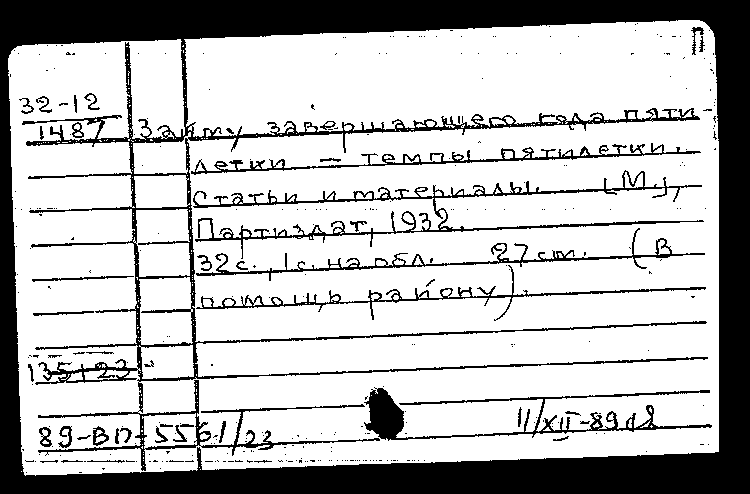 П
32-12
1487 Займу завершающего года пяти-
летки – темпы пятилетки.
Статьи и материалы. [М.],
Партиздат, 1932.
32с., 1с. на обл. 27 см. (В
помощь району).
135+23
89-ВП-5561/23 11/XII-89